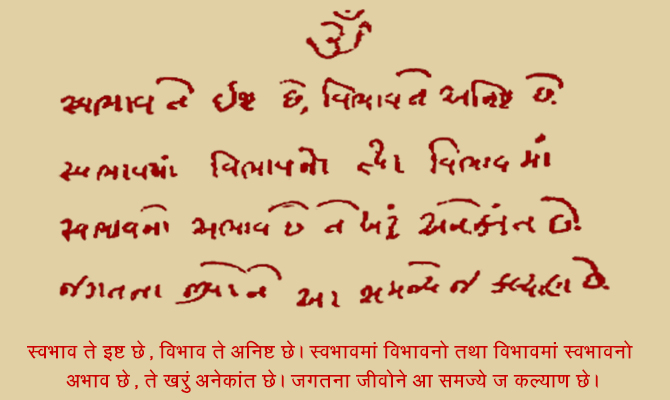 ૐ
સ્વભાવ તે ઈષ્ટ છે, વિભાવ તે અનિષ્ટ છે.
સ્વભાવમાં વિભાવનો તથા વિભાવમાં
સ્વભાવનો અભાવ છે તે ખરું અનેકાંત છે.
જગતના જીવોને આ સમજ્યે જ કલ્યાણ છે.
स्वभाव ते इष्ट छे, विभाव ते अनिष्ट छे। स्वभावमां विभावनो तथा विभावमां स्वभावनो
अभाव छे, ते खरुं अनेकांत छे। जगतना जीवोने आ समज्ये ज कल्याण छे।